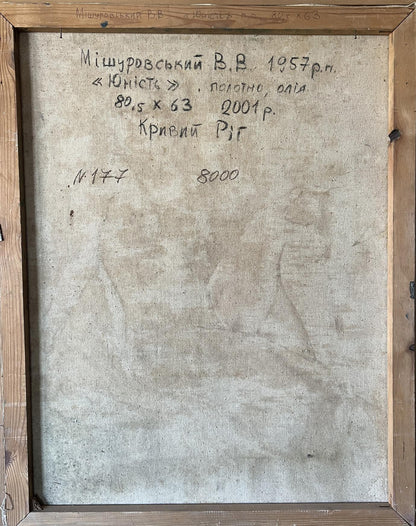 Мішуровський В.В. «Юність» х.о. 80,5 х 63
Мішуровський В.В. 1957р.н.
«Юність», полотно, олія
80,5 х 63 2001р.
Кривий Ріг
N177 8000